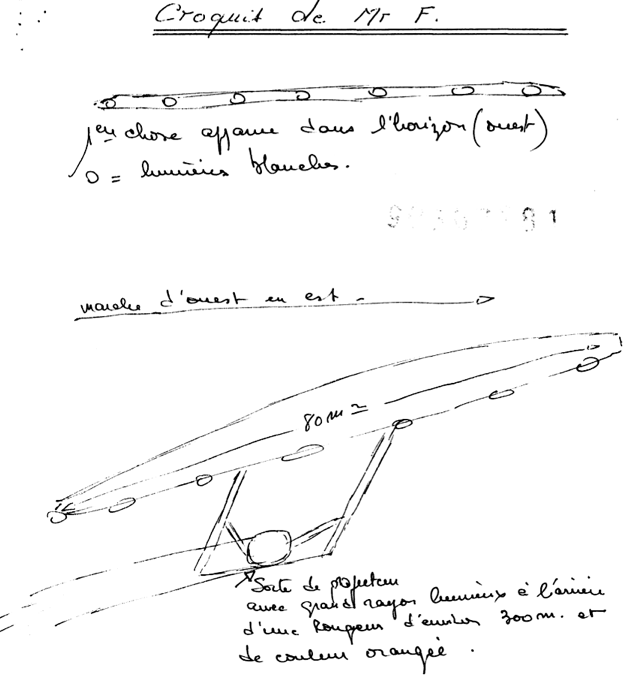 Croquit de Mr F.
1er chose apparue dans l'horizon (ouest)
O = lumières blanches.
marche d'ouest en est -
80 m ≃
Sorte de projecteur
avec grand rayon lumineux à l'arrière
d'une longueur d'environ 300 m. et
de couleur orangée.